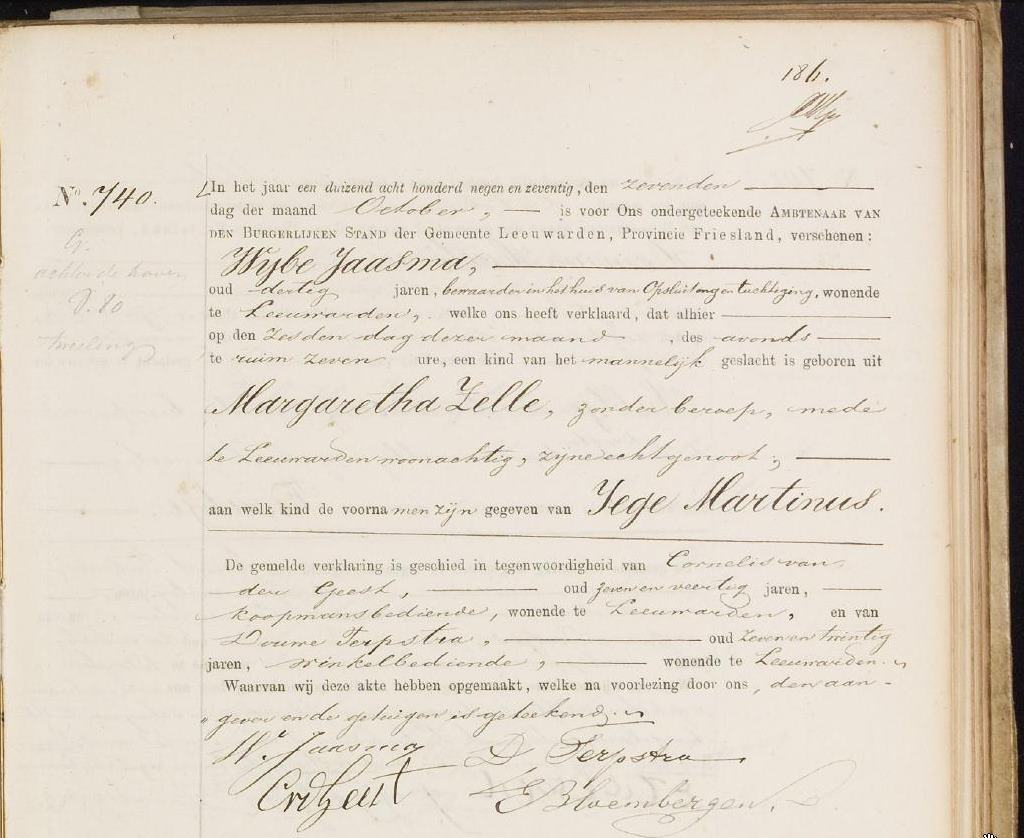 186.
No. 740.
In het jaar een duizend acht honderd negen en zeventig, den zevenden
dag der maand October, is voor Ons ondergeteekende AMBTENAAR VAN
DEN BURGERLIJKEN STAND der Gemeente Leeuwarden, Provincie Friesland, verschenen:
G.
Wybe Jaasma,
achter de hoven
oud dertig jaren, bewaarder in het huis van Opsluiting en tuchtiging, wonende
D. 80
te Leeuwarden, welke ons heeft verklaard, dat alhier
op den zesden dag dezer maand, des avonds
tweeling
te ruim zeven ure, een kind van het mannelijk geslacht is geboren uit
Margaretha Zelle, zonder beroep, mede
te Leeuwarden woonachtig, zijne echtgenoot;
aan welk kind de voornamen zijn gegeven van Yege Martinus.
De gemelde verklaring is geschied in tegenwoordigheid van Cornelis van
der Geest, oud zeven en veertig jaren,
koopmansbediende, wonende te Leeuwarden, en van
Douwe Terpstra, oud zeven en twintig
jaren, winkelbediende, wonende te Leeuwarden.
Waarvan wij deze akte hebben opgemaakt, welke na voorlezing door ons, den aan-
gever en de getuigen is geteekend.
W. Jaasma D. Terpstra
CvdGeest Bloembergen